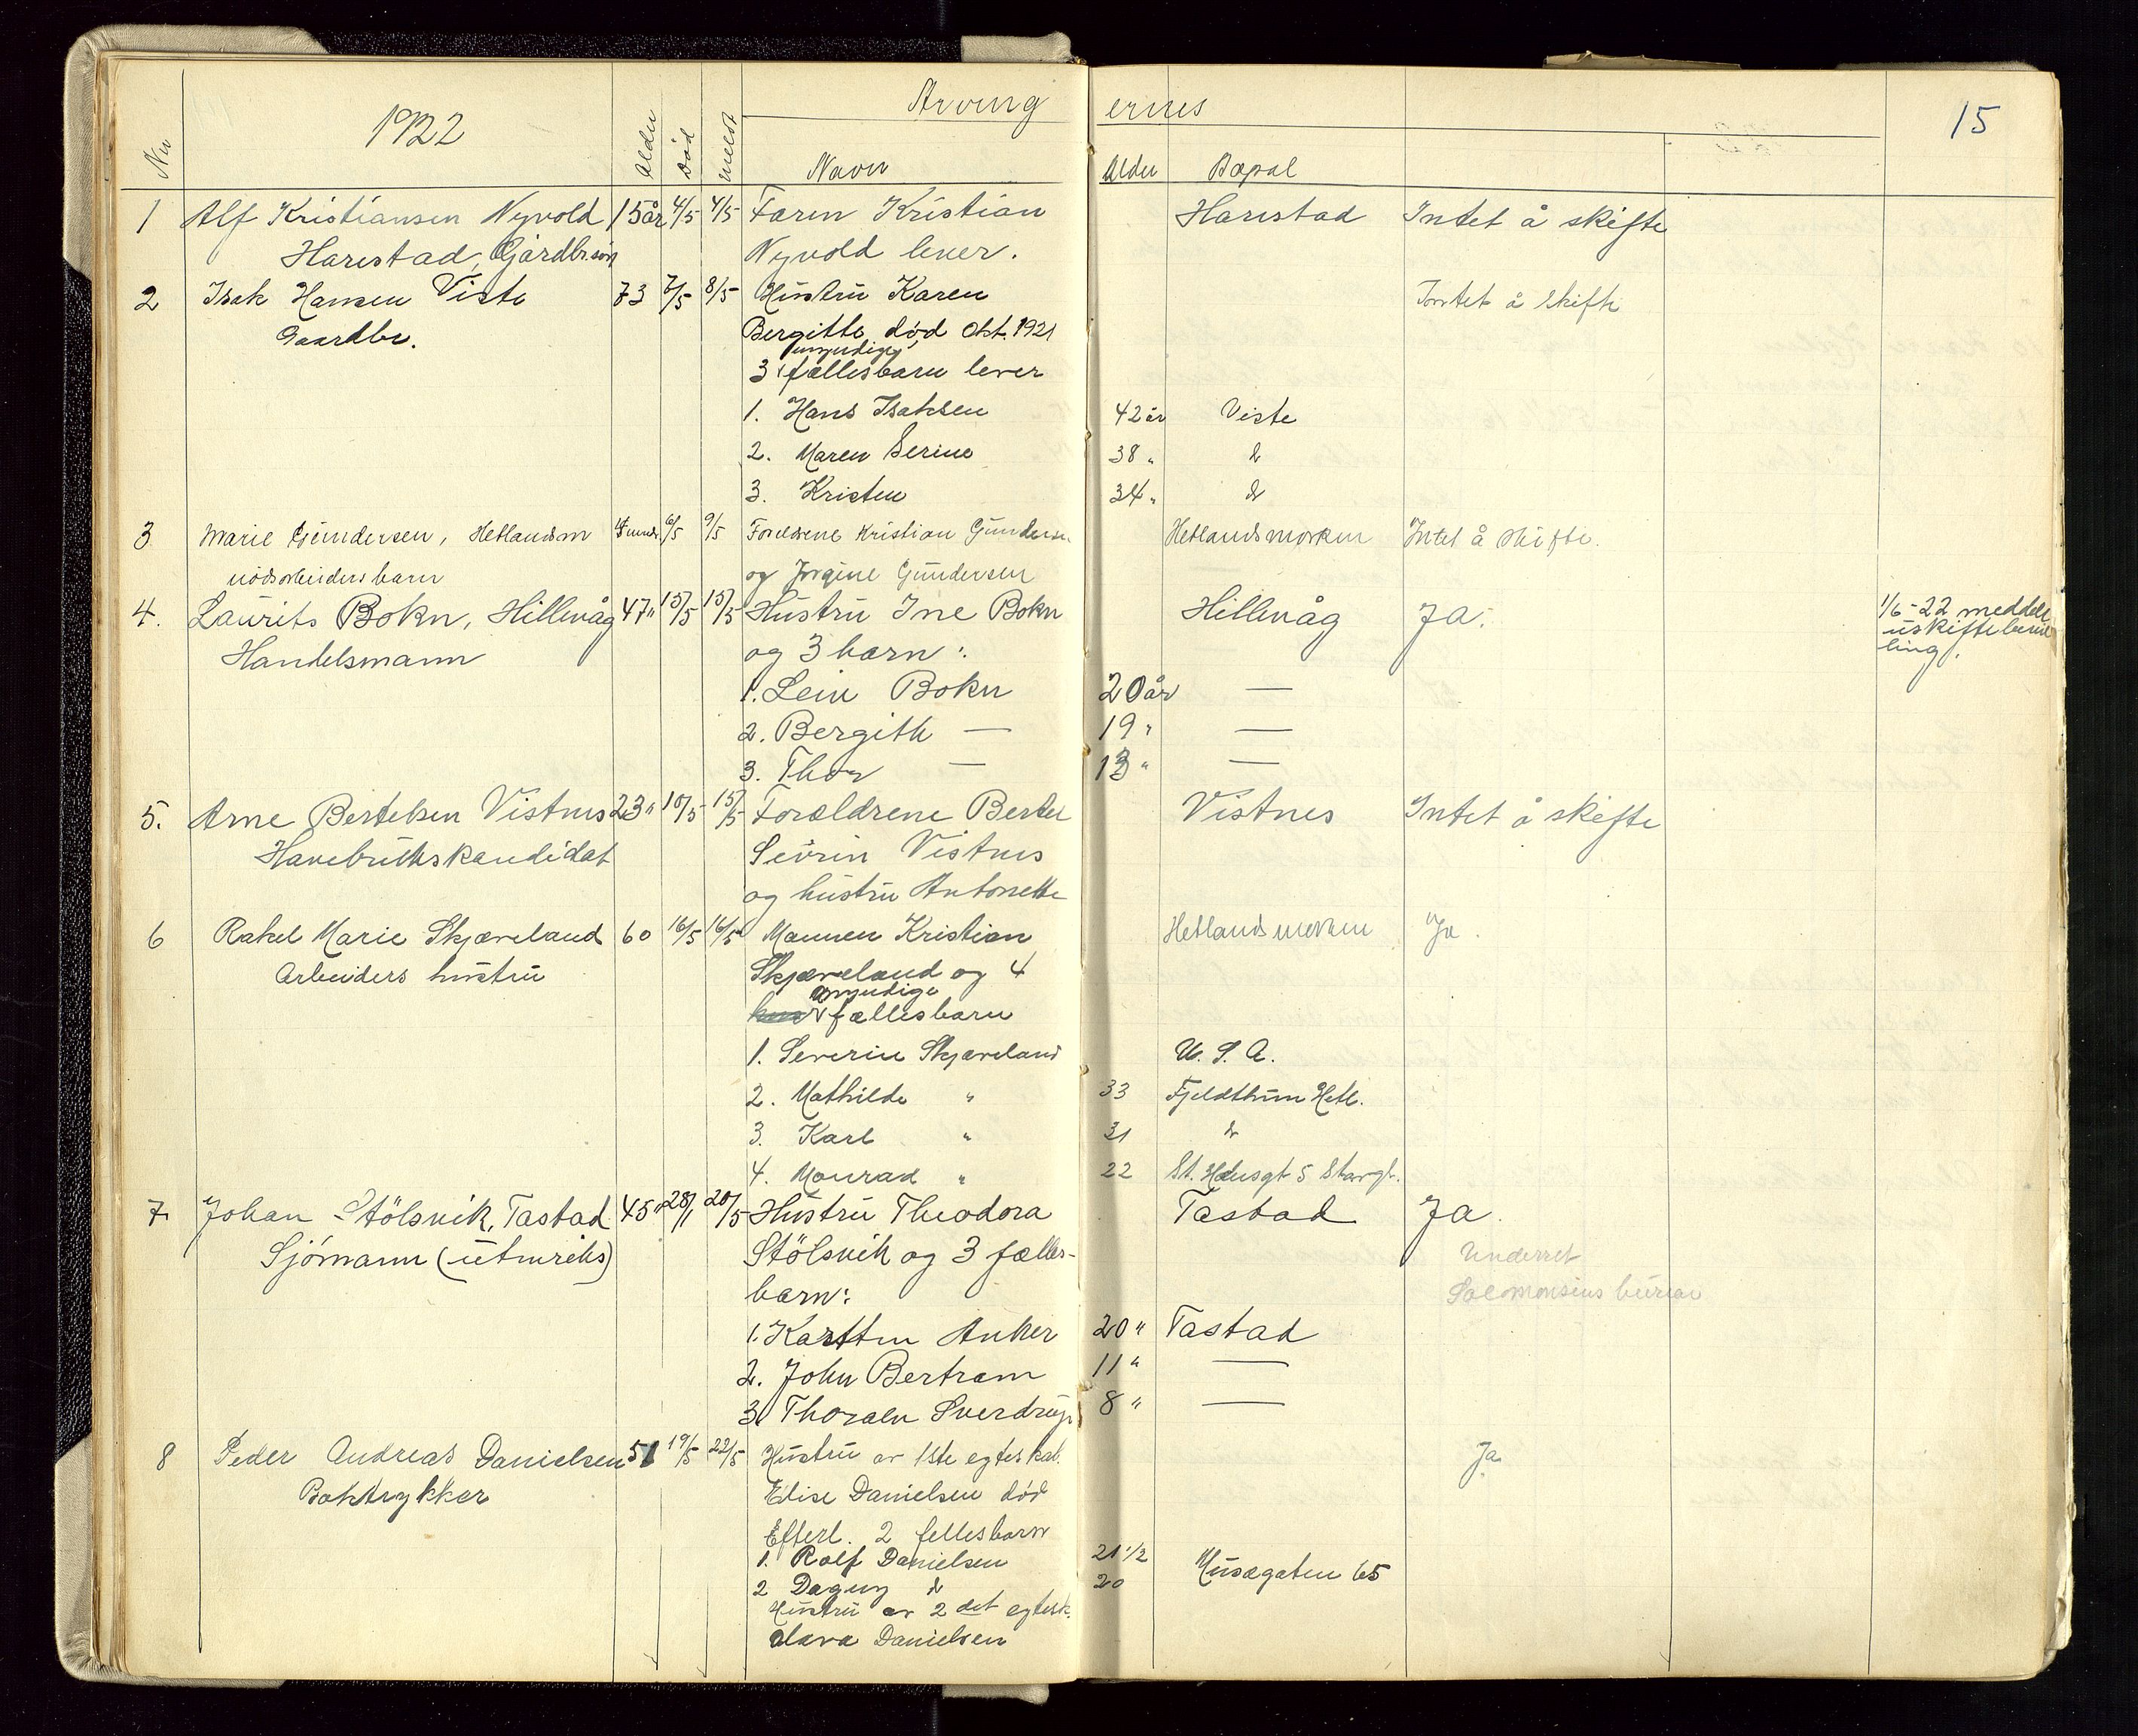 Nr 1922 Alder Død meldt Arving ernes 15
Navn Alder Bopal
1 Alf Kristiansen Nyvold 15 år 4/5 4/5 Faren Kristian Harestad Intet å skifte
Harestad, Gårdbr.søn Nyvold lever.
2 Isak Hansen Viste 73 7/5 8/5 Hustru Karen Intet å skifte
Gaardbr. Bergitte, død Okt. 1921
umyndige
3 fællesbarn lever
1. Hans Isaksen 42 år Viste
2. Maren Serine 38 " d
3. Kristen 34 " d
3 Marie Gundersen, Hetlandsm 6/5 9/5 Foreldrene Kristian Gundersen Hetlandsmarken Intet å skifte.
nødsarbeiders barn og Jorgine Gundersen
4. Laurits Bokn, Hillevåg 47 " 15/5 15/5 Hustru Ine Bokn Hillevåg Ja. 1/6-22 meddelt
Handelsmann og 3 barn: uskiftebevil
ling.
1. Lein Bokn 20 år —
2. Bergith — 19 " —
3. Thor — 13 " —
5. Arne Bertelsen Vistnes 23 " 10/5 15/5 Forældrene Bertel Vistnes Intet å skifte
Havebrukskandidat Sevrin Vistnes
og hustru Antonette
6 Rakel Marie Skjæveland 60 16/5 16/5 Mannen Kristian Hetlandsmarken Ja.
Arbeiders hustru Skjæveland og 4
myndige
fællesbarn
1. Severin Skjæveland U. S. A.
2. Mathilde " 33 Fjeldthun Hetl.
3. Karl " 31 d
4. Monrad " 22 St. Hansgt 5 Stavgr.
7. Johan Stölsvik, Tastad 45 " 28/1 20/5 Hustru Theodora Tastad Ja.
Sjömann (utenriks) Stölsvik og 3 fælles- Underret
barn: Salomonsens bureau
1. Karsten Anker 20 " Tastad
2. John Bertram 11 " —
3. Thoralv Sverdrup 8 " —
8 Peder Andreas Danielsen 51 19/5 22/5 Hustru av 1ste egteskab. Ja.
Boktrykker Elise Danielsen død
Efterl. 2 fellesbarn
1. Rolf Danielsen 21 1/2 Musegaten 65
2 Dagny d 20
Hustru av 2det egtesk.
Clara Danielsen